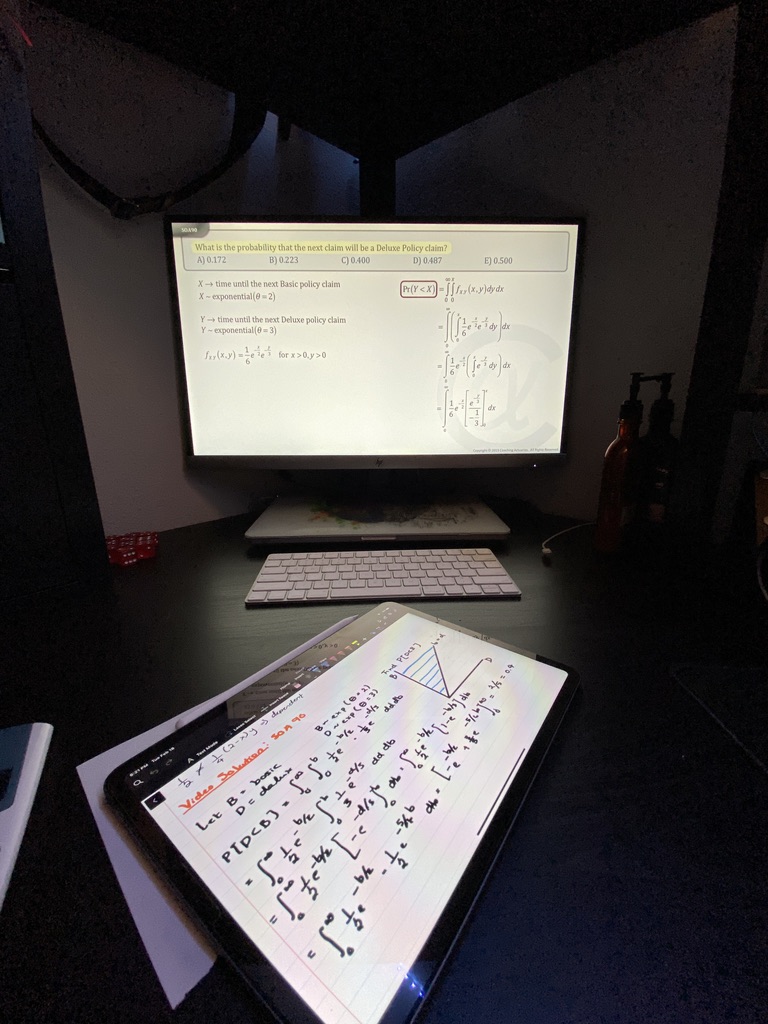 SOA 90
What is the probability that the next claim will be a Deluxe Policy claim?
A) 0.172 B) 0.223 C) 0.400 D) 0.487 E) 0.500
X → time until the next Basic policy claim
X ~ exponential(θ = 2)
Y → time until the next Deluxe policy claim
Y ~ exponential(θ = 3)
f_{X,Y}(x,y) = 1/6 e^{-x/2} e^{-y/3} for x > 0, y > 0
Pr(Y < X) = ∫_0^∞ ∫_0^x f_{X,Y}(x,y) dy dx
= ∫_0^∞ (∫_0^x 1/6 e^{-x/2} e^{-y/3} dy) dx
= ∫_0^∞ 1/6 e^{-x/2} (∫_0^x e^{-y/3} dy) dx
= ∫_0^∞ 1/6 e^{-x/2} [e^{-y/3} / -1/3]_0^x dx
hp
Video Solution: SOA 90
Let B = basic B ~ exp (θ = 2)
D = deluxe D ~ exp (θ = 3)
Find P[D<B]
B
b=d
D
P[D<B] = ∫_0^∞ ∫_0^b 1/2 e^{-b/2} · 1/3 e^{-d/3} dd db
= ∫_0^∞ 1/2 e^{-b/2} ∫_0^b 1/3 e^{-d/3} dd db
= ∫_0^∞ 1/2 e^{-b/2} [-e^{-d/3}]_0^b db = ∫_0^∞ 1/2 e^{-b/2} [1-e^{-b/3}] db
= ∫_0^∞ 1/2 e^{-b/2} - 1/2 e^{-5/6 b} db = [-e^{-b/2} + 3/5 e^{-5/6 b}]_0^∞ = 2/5 = 0.4